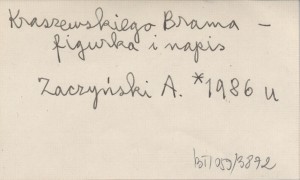 Kraszewskiego Brama –
figurka i napis
Zaczyński A. *1986 u
bł/059/3892